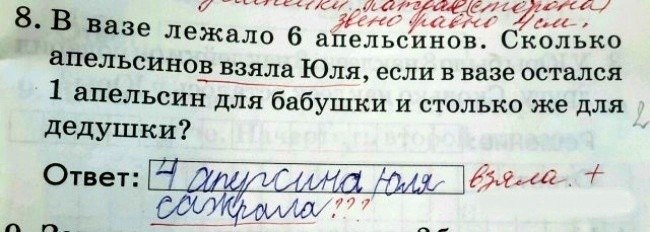 звено равно 4 см.
8. В вазе лежало 6 апельсинов. Сколько
апельсинов взяла Юля, если в вазе остался
1 апельсин для бабушки и столько же для
дедушки?
2
Ответ: 4 апурсина Юля взяла. +
сажрала???